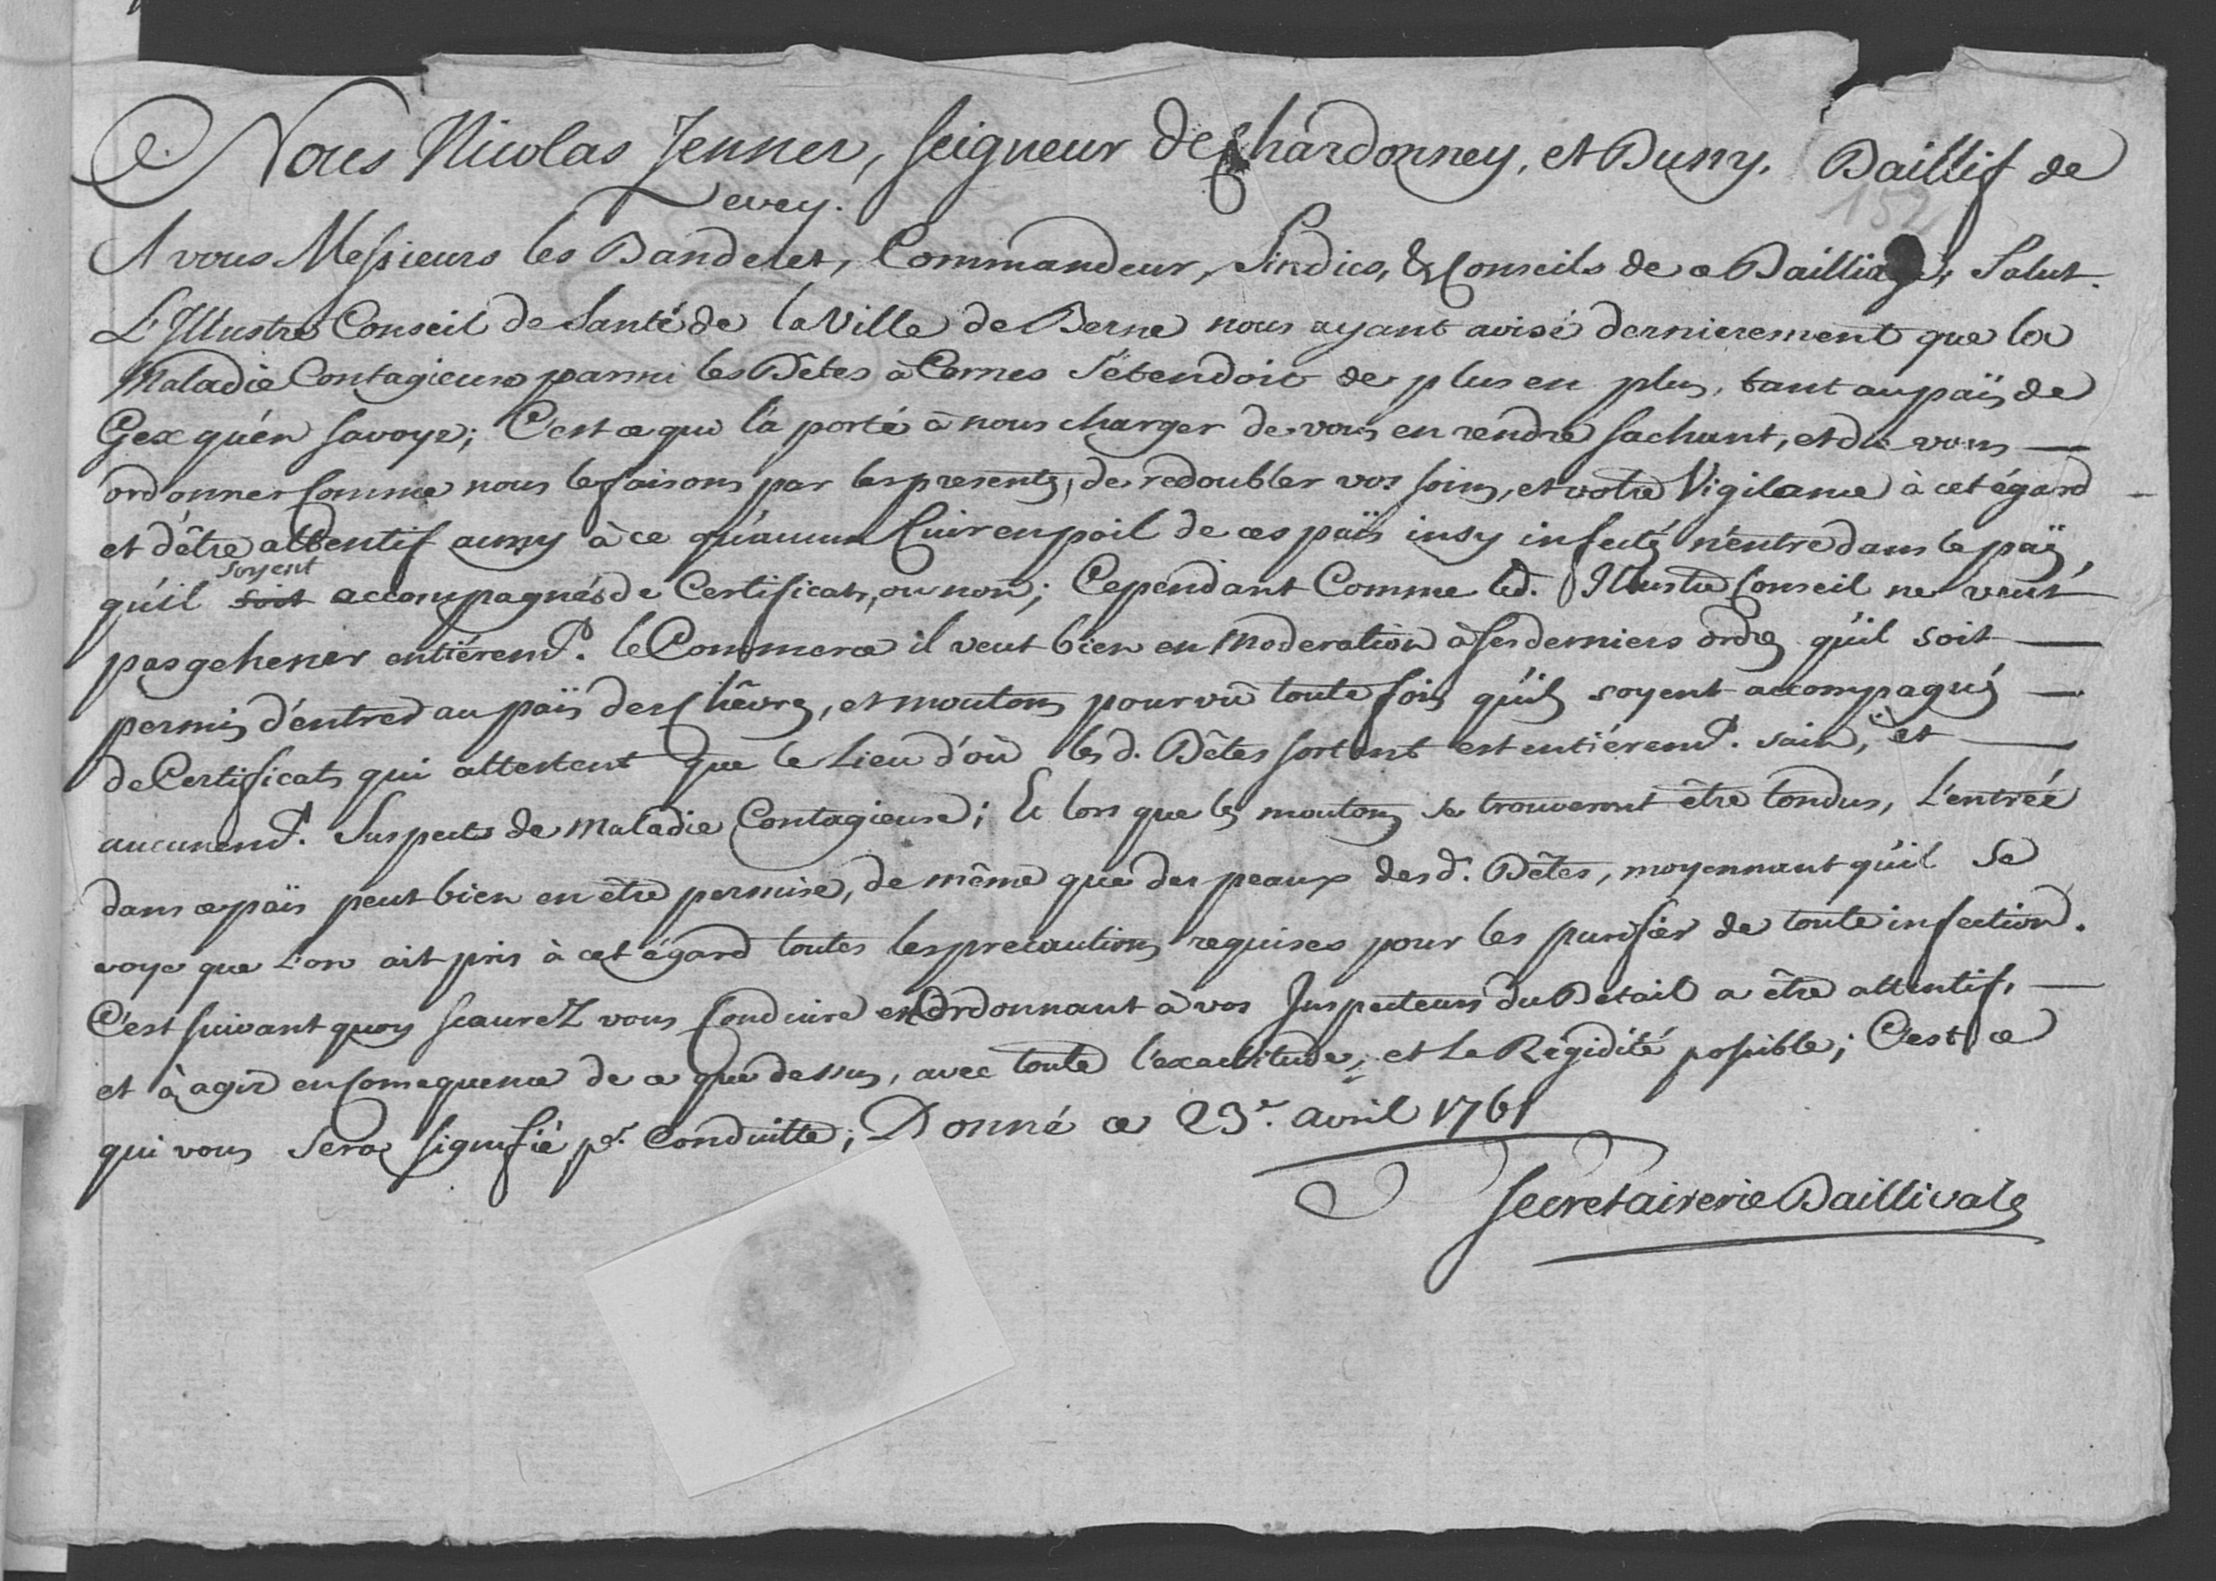 Nous Nicolas Jenner, seigneur de Chardonney, et Bussy, Baillif de
Vevey.
152
A vous Messieurs les Banderet, Commandeur, Sindics, & Conseils de ce Bailliage, Salut.
L'Illustre Conseil de Santé de la Ville de Berne nous ayant avisé dernierement que la
Maladie Contagieuse parmi les Bêtes à Cornes s'étendoit de plus en plus, tant au païs de
Gex qu'én Savoye; C'est ce qui l'a porté à nous charger de vous en rendre sachant, et de vous
ordonner comme nous le faisons par les presentes, de redoubler vos soins, et votre Vigilance à cet égard
et d'être attentif aussy à ce qu'aucun Cuir en poil de ces païs insy infectés n'entre dans le païs,
qu'il soit soyent accompagnés de Certificats, ou non; Cependant Comme led. Illustre Conseil ne veut
pas gehener entiérem.t le Commerce il veut bien en Moderation à ses derniers ordres qu'il soit
permis d'entrer au païs des Chêvres, et moutons pourvû toute fois qu'ils soyent accompagnés
de Certificats qui attestent que le Lieu d'où lesd. Bêtes sortent est entiérem.t sain, et
aucunem.t Suspects de Maladie Contagieuse; Et lors que les moutons se trouveront être tondus, L'entrée
dans ce païs peut bien en être permise, de même que des peaux desd. Bêtes, moyennant qu'il se
voye que L'on ait pris à cet égard toutes les precautions requises pour les purifier de toute infection.
C'est suivant quoy scaurez vous conduire en Ordonnant à vos Inspecteurs du Betail a être attentifs,
et à agir en consequence de ce que dessus, avec toute l'exactitude, et la Rigidité possible; C'est ce
qui vous sera signifié p.r Conduitte; Donné ce 23.e avril 1761
Secretairerie Baillivale